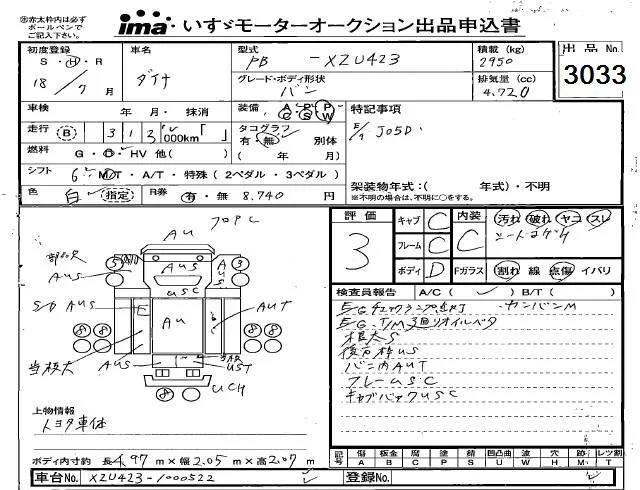 ※赤太枠内は必ず
ボールペンで
ご記入下さい。
ima いすゞモーターオークション出品申込書
初度登録 車名 型式 積載(kg) 出品No.
S・H・R
18/7月 ダイナ PB - XZU423 2950
グレード・ボディ形状 排気量(cc) 3033
バン 4.720
車検 年 月・抹消 装備 A/C P/S P/W 特記事項
走行 B 313 000km「 」 タコグラフ 有・無 別体 E/G J05D.
燃料 G・D・HV 他( ) ( 年 月)
シフト 6 M/T・A/T・特殊(2ペダル・3ペダル) 架装物年式:( 年式)・不明
色 白(指定) R券 有・無 8.740 円 ※不明の場合は、不明に○をする。
評価 3
キャブ C 内装 C 汚れ 破れ ヤニ スレ
フレーム C シートコゲ
ボディ D Fガラス 割れ 線 点傷 イバリ
検査員報告 A/C( ) B/T( )
E/Gチェックランプ点灯 カンバンM
E/G.T/M
根太S
後方枠US
バン内AUT
フレームSC
キャブバックUSC
フロPC
AU
AUS
AUS
AUS
USC
S/D AUS
AU
AUT
AUS
UST
UCH
5 3
8 8 8 8
上物情報
トヨタ車体
ボディ内寸約 長4.97m×幅2.05m×高2.07m
記号 傷 板金 腐 塗 錆 凹 凹凸曲 波 穴 跡 レツ割
A B C P S U W H M T
車台No. XZU423-1000522 登録No.